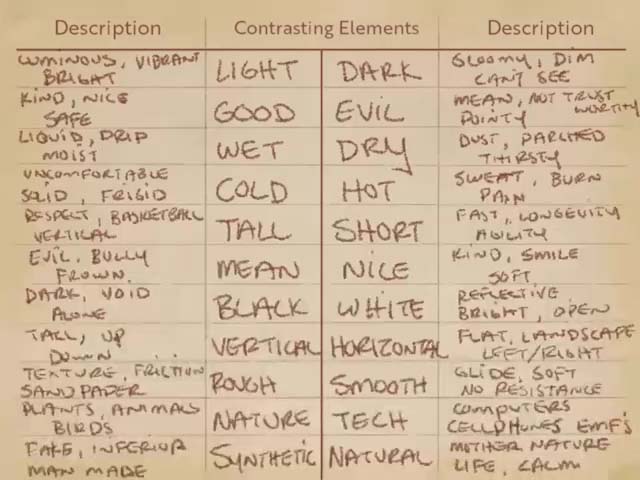 Description Contrasting Elements Description
LUMINOUS, VIBRANT
BRIGHT
LIGHT DARK
GLOOMY, DIM
CAN'T SEE
KIND, NICE
SAFE
GOOD EVIL
MEAN, NOT TRUST
POINTY WORTHY
LIQUID, DRIP
MOIST
WET DRY
DUST, PARCHED
THIRSTY
UNCOMFORTABLE
SOLID, FRIGID
COLD HOT
SWEAT, BURN
PAIN
RESPECT, BASKETBALL
VERTICAL
TALL SHORT
FAST, LONGEVITY
AGILITY
EVIL, BULLY
FROWN.
MEAN NICE
KIND, SMILE
SOFT
DARK, VOID
ALONE
BLACK WHITE
REFLECTIVE
BRIGHT, OPEN
TALL, UP
DOWN
VERTICAL HORIZONTAL
FLAT, LANDSCAPE
LEFT/RIGHT
TEXTURE, FRICTION
SANDPAPER
ROUGH SMOOTH
GLIDE, SOFT
NO RESISTANCE
PLANTS, ANIMALS
BIRDS
NATURE TECH
COMPUTERS
CELLPHONES EMF'S
FAKE, INFERIOR
MAN MADE
SYNTHETIC NATURAL
MOTHER NATURE
LIFE, CALM